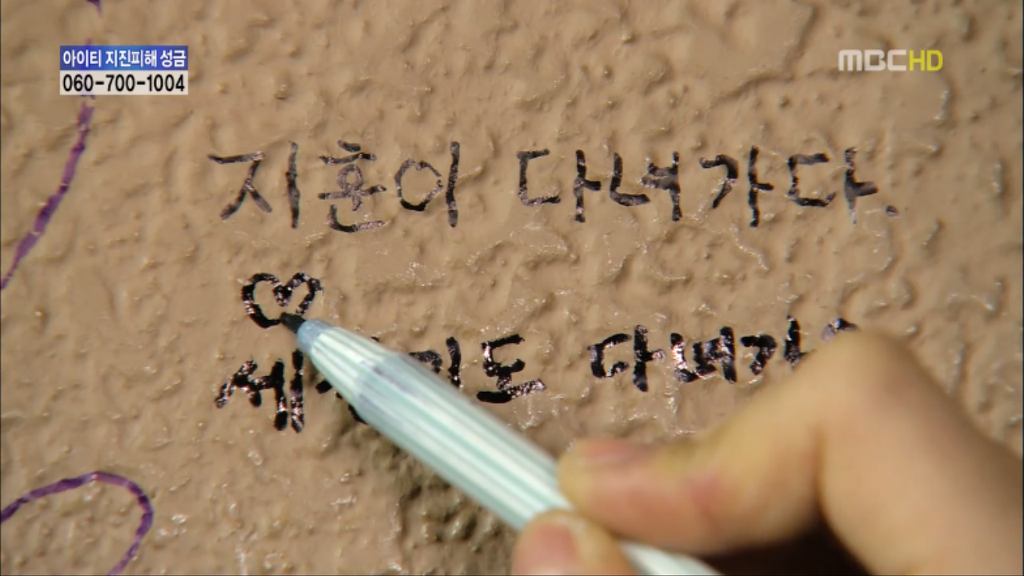 아이티 지진피해 성금
060-700-1004
MBC HD
지훈이 다녀가다.
다녀가